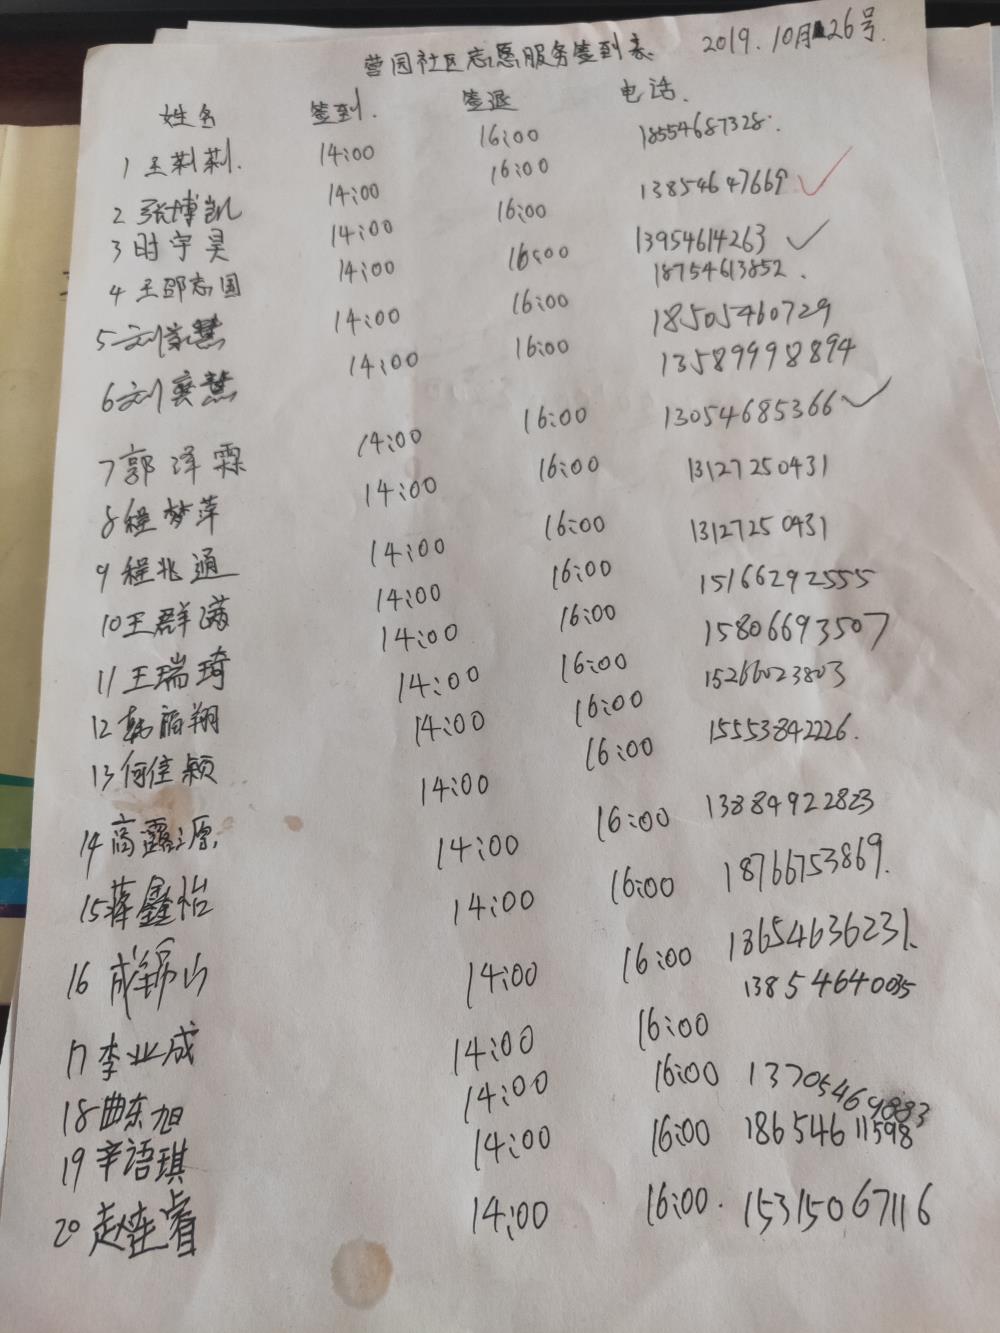 营园社区志愿服务签到表 2019.10月26号.
姓名 签到. 签退 电话.
1 王莉莉. 14:00 16:00 18554687328.
2 张博凯 14:00 16:00 13854647669 ✓
3 时宇昊 14:00 16:00 13954614263 ✓
4 王邵志国 14:00 16:00 18754613852.
5 刘慧 14:00 16:00 18505460729
6 刘奕慧 14:00 16:00 13589998894
7 郭泽霖 14:00 16:00 13054685366 ✓
8 程梦萍 14:00 16:00 13127250431
9 程兆通 14:00 16:00 13127250431
10 王群满 14:00 16:00 15166292555
11 王瑞琦 14:00 16:00 15806693507
12 韩福翔 14:00 16:00 15266023803
13 何佳颖 14:00 16:00 15553842226.
14 高露源 14:00 16:00 13884922823
15 蒋鑫怡 14:00 16:00 18766753869.
16 成锡山 14:00 16:00 13654636231.
17 李业成 14:00 16:00 13854640035
18 曲东旭 14:00 16:00 13705469883
19 辛语琪 14:00 16:00 18654611598
20 赵在睿 14:00 16:00. 15315067116